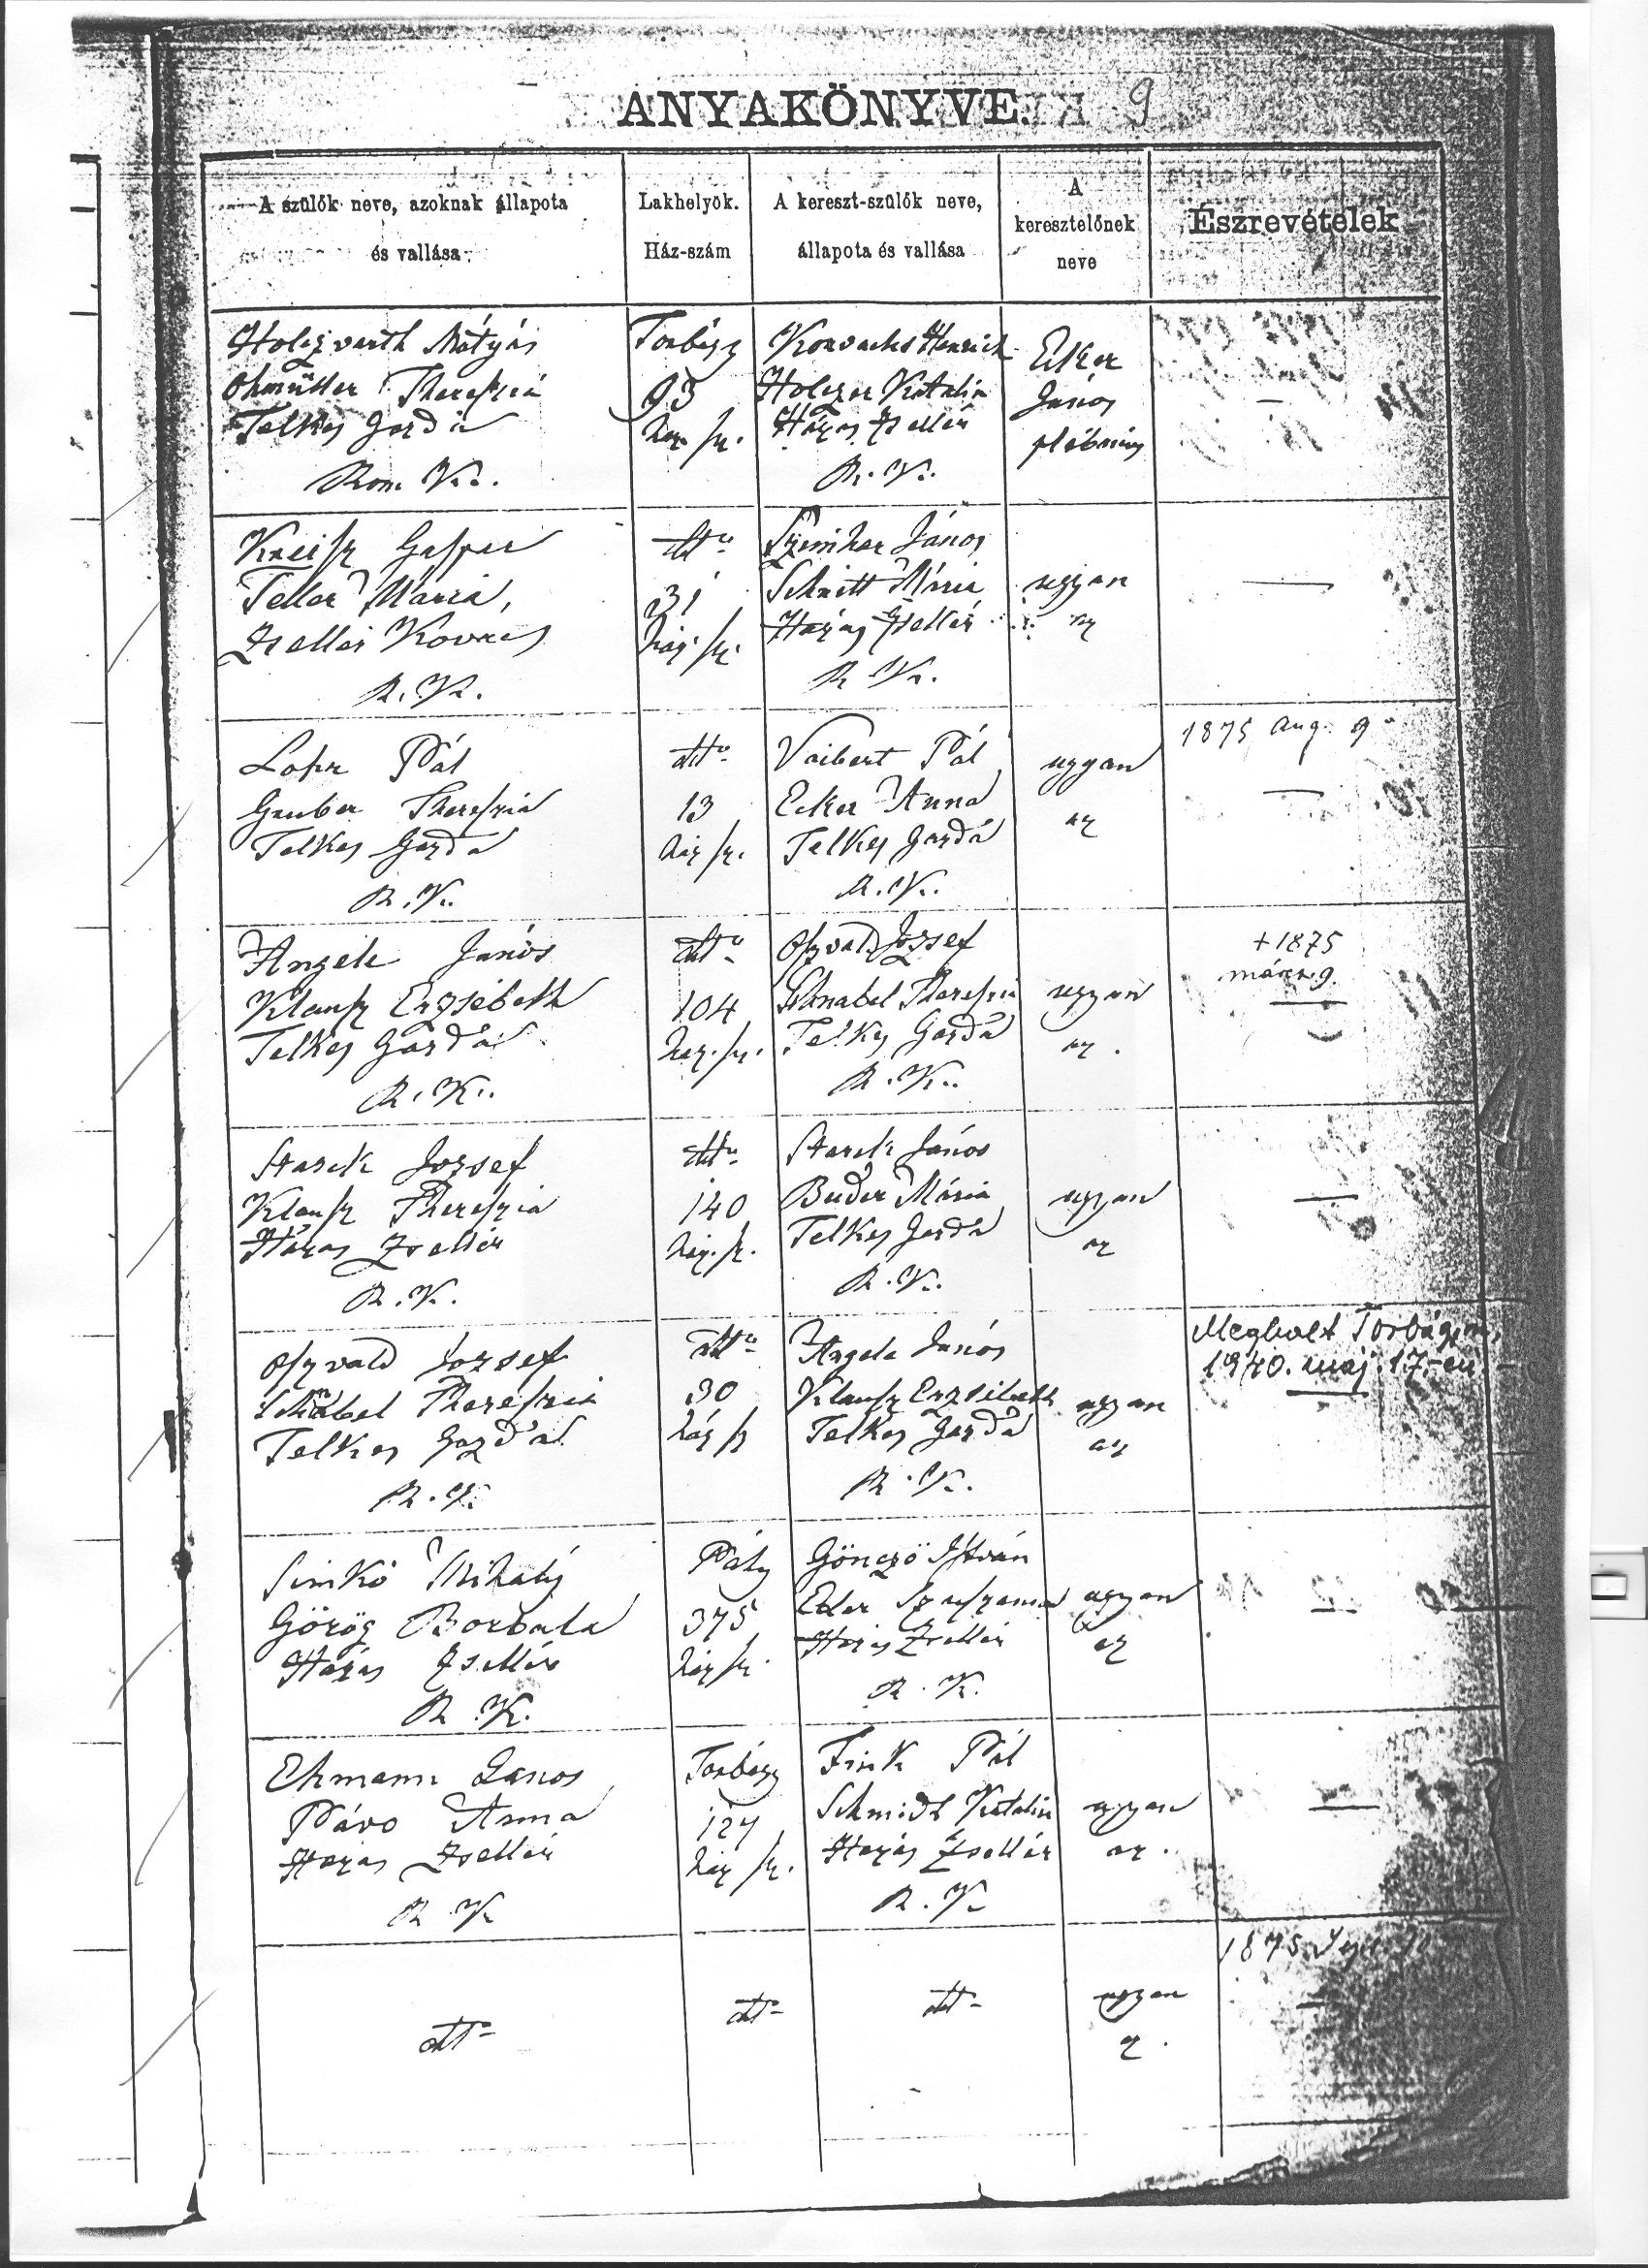 ANYAKÖNYVE. 9
A szülők neve, azoknak állapota
és vallása
Lakhelyök.
Ház-szám
A kereszt-szülők neve,
állapota és vallása
A
keresztelőnek
neve
Észrevételek
Holczvarth Mátyás
Ohmüller Thereszia
Telkes Gazda
Rom K.
Torbágy
93
ház sz.
Henrich
Holczer Katalin
Házas Zsellér
R. K.
Ecker
János
plébános
Kreisz Gaspar
Teller Mária,
Zsellér Kovács
R. K.
dtto
31
ház sz.
János
Schnitt Mária
Házas Zsellér
R K.
ugyan
az
Lohr Pál
Gruber Thereszia
Telkes Gazda
R. K.
dtto
13
ház sz.
Vaibert Pál
Ecker Anna
Telkes Gazda
R. K.
ugyan
az
1875 Aug. 9
Angele János
Klausz Erzsébeth
Telkes Gazda
R. K.
dtto
104
ház. sz.
Oszvald József
Schnabel Thereszia
Telkes Gazda
R. K.
ugyan
az.
+ 1875
márz. 9.
Starck Jozsef
Klausz Thereszia
Házas Zsellér
R. K.
dtto
140
ház. sz.
Starck János
Buder Mária
Telkes Gazda
R. K.
ugyan
az
Oszvald Jozsef
Schnabel Thereszia
Telkes Gazda
R. K.
dtto
30
ház sz
Angele János
Klausz Erzsébeth
Telkes Gazda
R. K.
ugyan
az
Meghalt Torbágyon,
1940. máj. 17-én
Sinkó Mihály
Görög Borbála
Házas Zsellér
R. K.
Páty
375
ház sz.
Gönczö István
Eder Zsuzsanna
Házas Zsellér
R. K.
ugyan
az
Ehmann Janos
Pávo Anna
Házas Zsellér
R K
Torbágy
127
ház sz.
Fink Pál
Schmidt Katalin
Házas Zsellér
R. K
ugyan
az.
dtto
dtto
dtto
ugyan
az.
1875